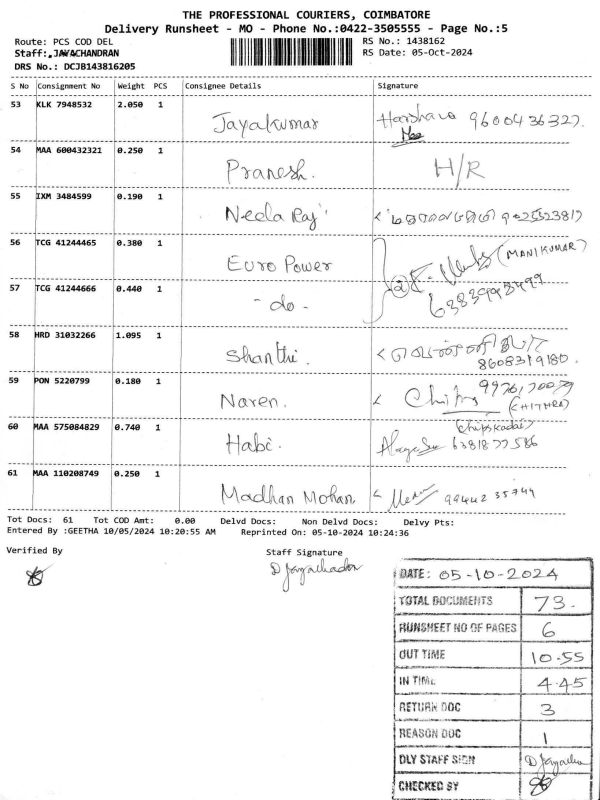 THE PROFESSIONAL COURIERS, COIMBATORE
Delivery Runsheet - MO - Phone No.:0422-3505555 - Page No.:5
Route: PCS COD DEL
RS No.: 1438162
Staff: JAYACHANDRAN
RS Date: 05-Oct-2024
DRS No.: DCJB143816205
S No Consignment No Weight PCS Consignee Details Signature
53 KLK 7948532 2.050 1 Jayakumar 9600436327.
54 MAA 600432321 0.250 1 Pranesh. H/R
55 IXM 3484599 0.190 1 Neela Raj
56 TCG 41244465 0.380 1 Euro Power (MANIKUMAR)
57 TCG 41244666 0.440 1 - do -
58 HRD 31032266 1.095 1 Shanthi. 8608319180.
59 PON 5220799 0.180 1 Naren. (CHITHRA)
60 MAA 575084829 0.740 1 Habi. 6381877586
61 MAA 110208749 0.250 1 Madhan Mohan 99442 35744
Tot Docs: 61 Tot COD Amt: 0.00 Delvd Docs: Non Delvd Docs: Delvy Pts:
Entered By :GEETHA 10/05/2024 10:20:55 AM Reprinted On: 05-10-2024 10:24:36
Verified By
Staff Signature
DATE: 05-10-2024
TOTAL DOCUMENTS 73.
RUNSHEET NO OF PAGES 6
OUT TIME 10.55
IN TIME 4.45
RETURN DOC 3
REASON DOC 1
DLY STAFF SIGN
CHECKED BY